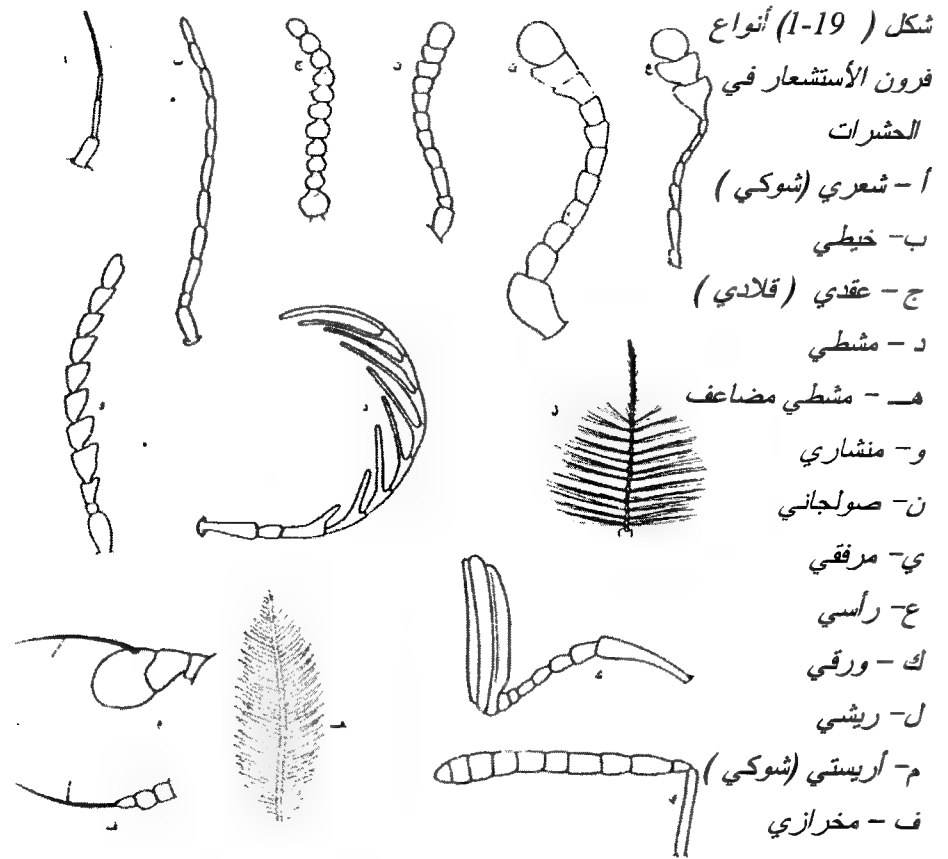 شكل ( 19-1) أنواع
قرون الأستشعار في
الحشرات
أ – شعري (شوكي )
ب- خيطي
ج – عقدي ( قلادي )
د – مشطي
هـ – مشطي مضاعف
و- منشاري
ن- صولجاني
ي- مرفقي
ع- رأسي
ك – ورقي
ل- ريشي
م- أريستي (شوكي )
ف – مخرازي
ب
ج
ن
ع
و
د
ل
م
هـ
ك
ف